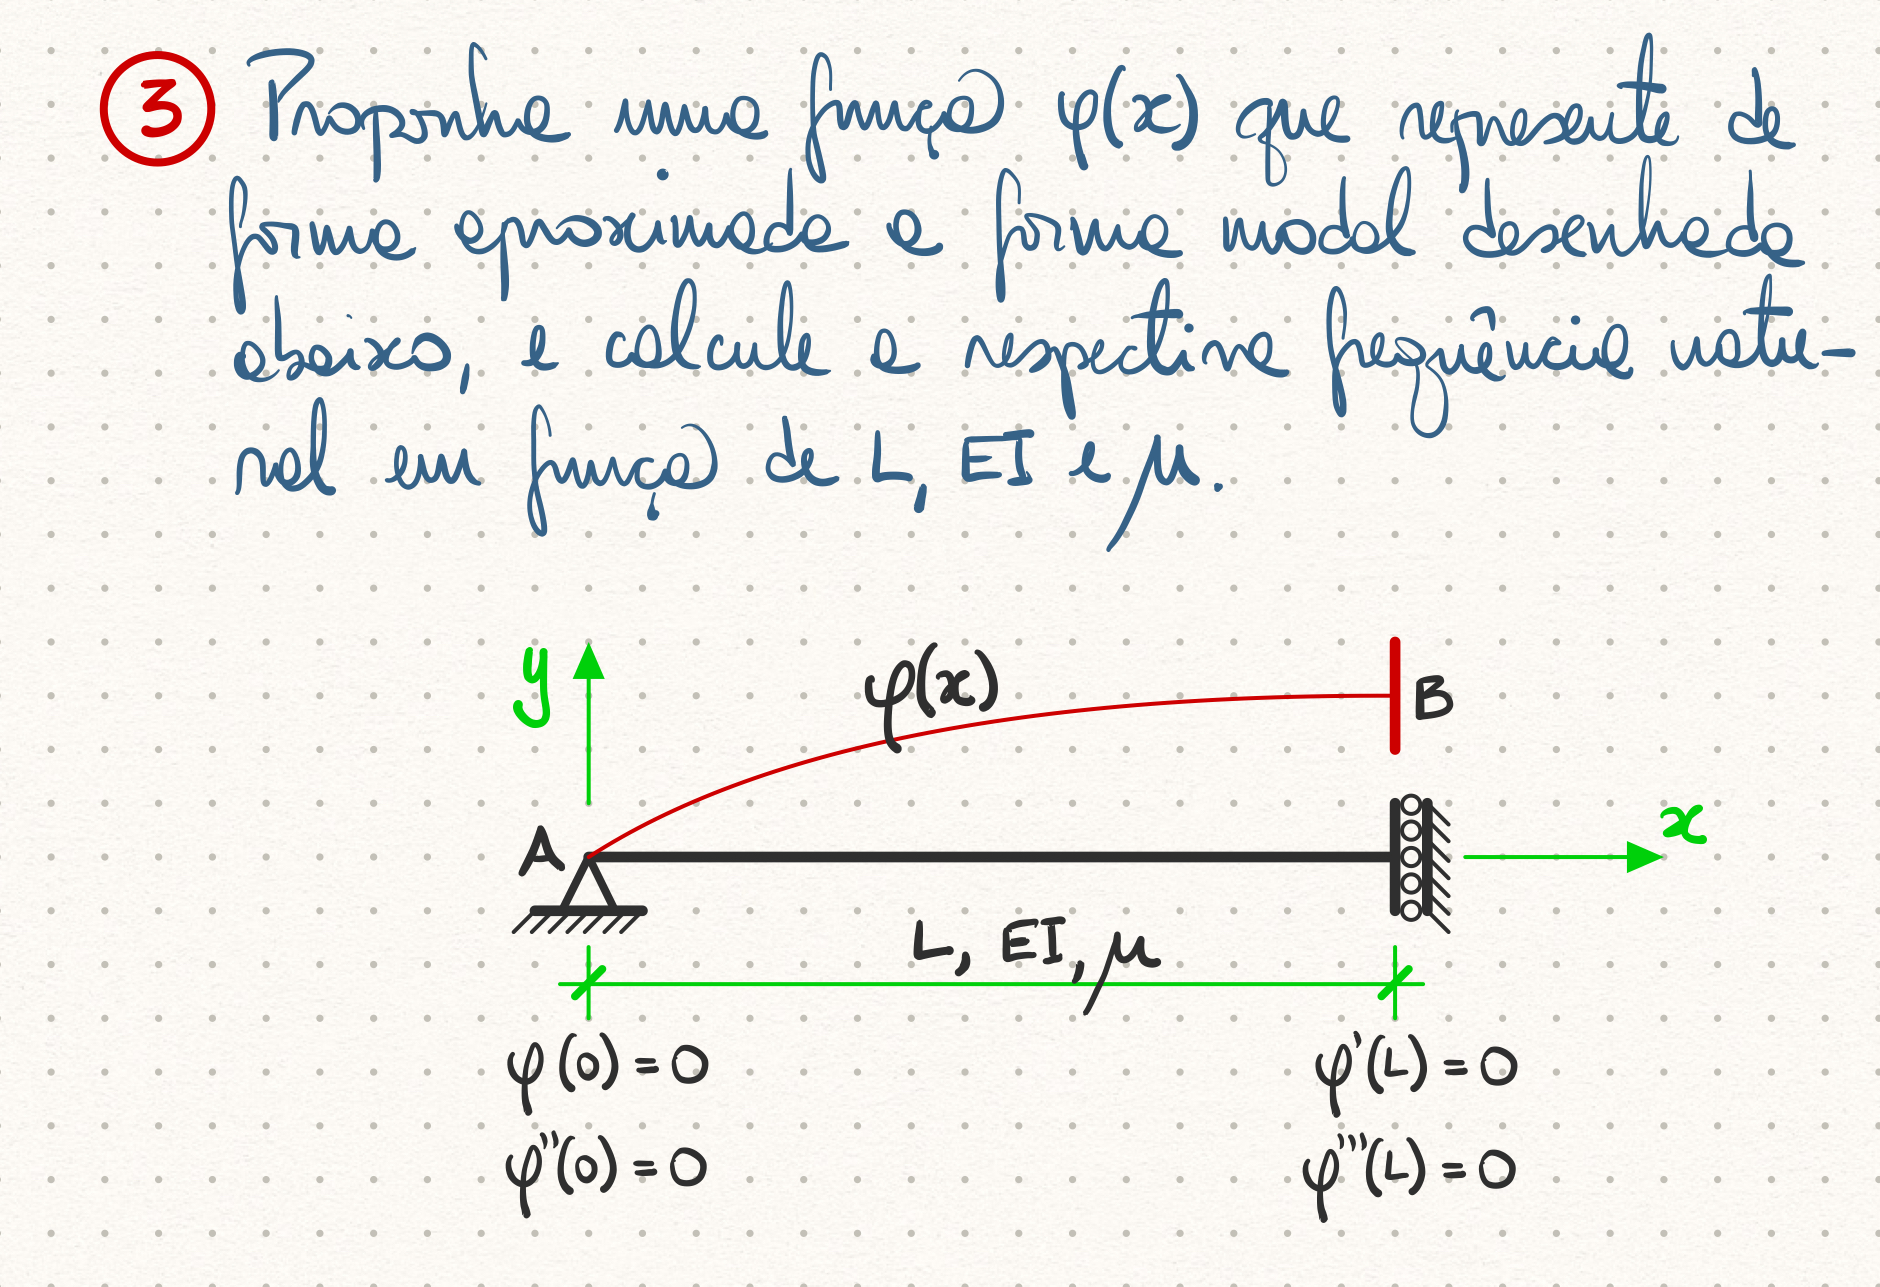 3 Proponha uma função φ(x) que represente de
forma aproximada a forma modal desenhada
abaixo, e calcule a respectiva frequência natu-
ral em função de L, EI e μ.
y φ(x) B
A x
L, EI, μ
φ(0) = 0 φ'(L) = 0
φ''(0) = 0 φ'''(L) = 0